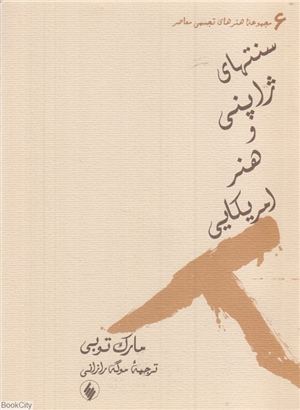 ۶ مجموعهٔ هنرهای تجسمی معاصر
سنتهای
ژاپنی
و
هنر
امریکایی
مارک توبی
ترجمهٔ موگه رازانی
BookCity